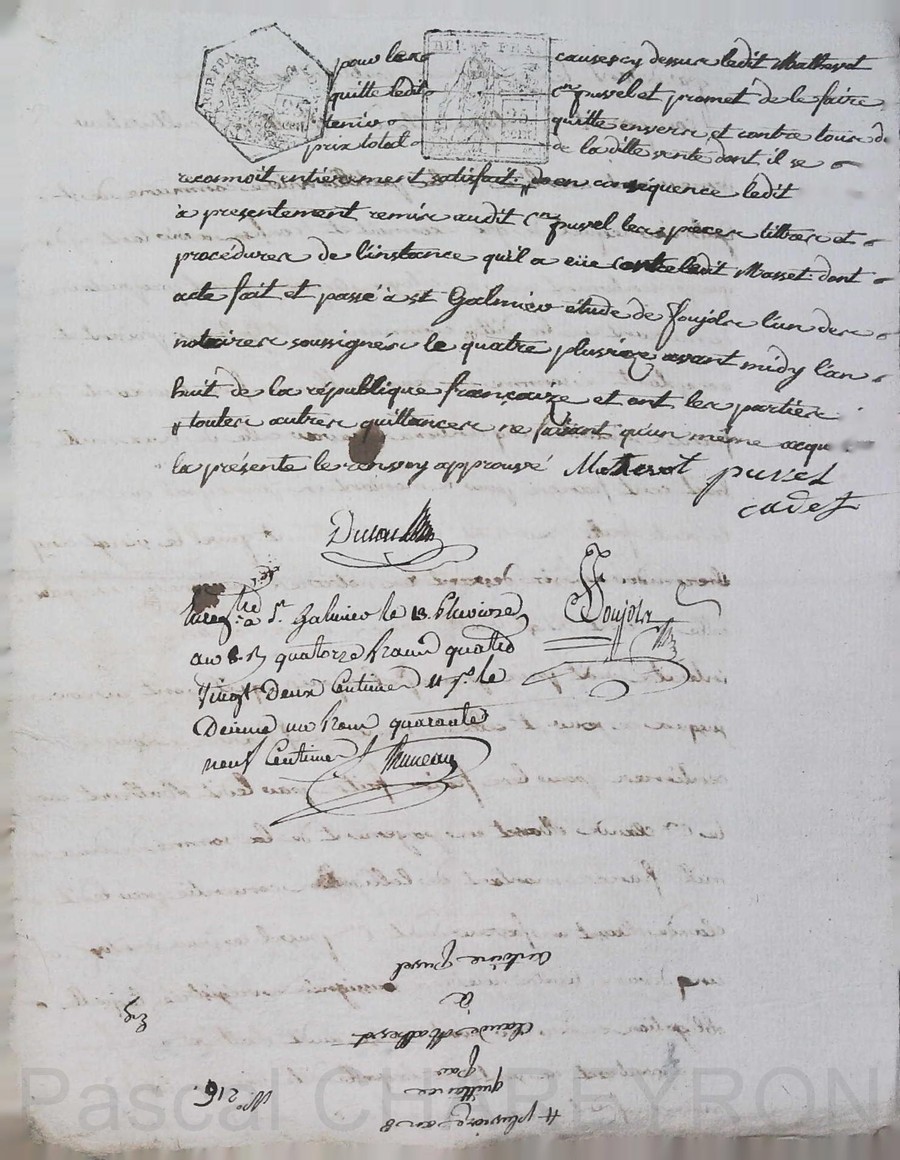 REP. FRA.
REP. FRA.
pour les causes cy dessus ledit Mathevot
quitte ledit cen puvel et promet de le faire
tenir quitte envers et contre tous du
prix total de la ditte vente dont il se
reconnoit entièrement satisfait, en conséquence ledit
à presentement remis audit cen puvel les pièces titres et
procédures de l'instance qu'il a eüe contre ledit Masset dont
acte fait et passé à st Galmier étude de Joujols l'un des
notaires soussignés le quatre pluvioze avant midy l'an
huit de la république françoize et ont les parties
# toutes autres quittances ne faisant qu'un même acqui
la présente le renvoy approuvé Mathevot puvel
cadet
Enregtré à St. Galmier le 13. Pluviose
an 8. R quatorze francs quatre
Vingt Deux Centimes
Decime un franc quarante
neuf Centimes
4 pluvioze an 8
quittance
par
Claude Mathevot
à
Antoine puvel
No 216.
Eg
Pascal CHAPEYRON